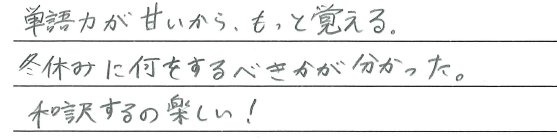 単語力が甘いから、もっと覚える。
冬休みに何をするべきかが分かった。
和訳するの楽しい!